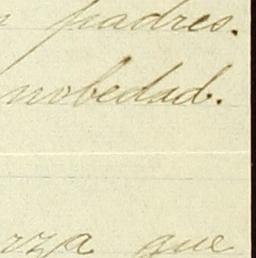 padres.
nobedad.
rza que